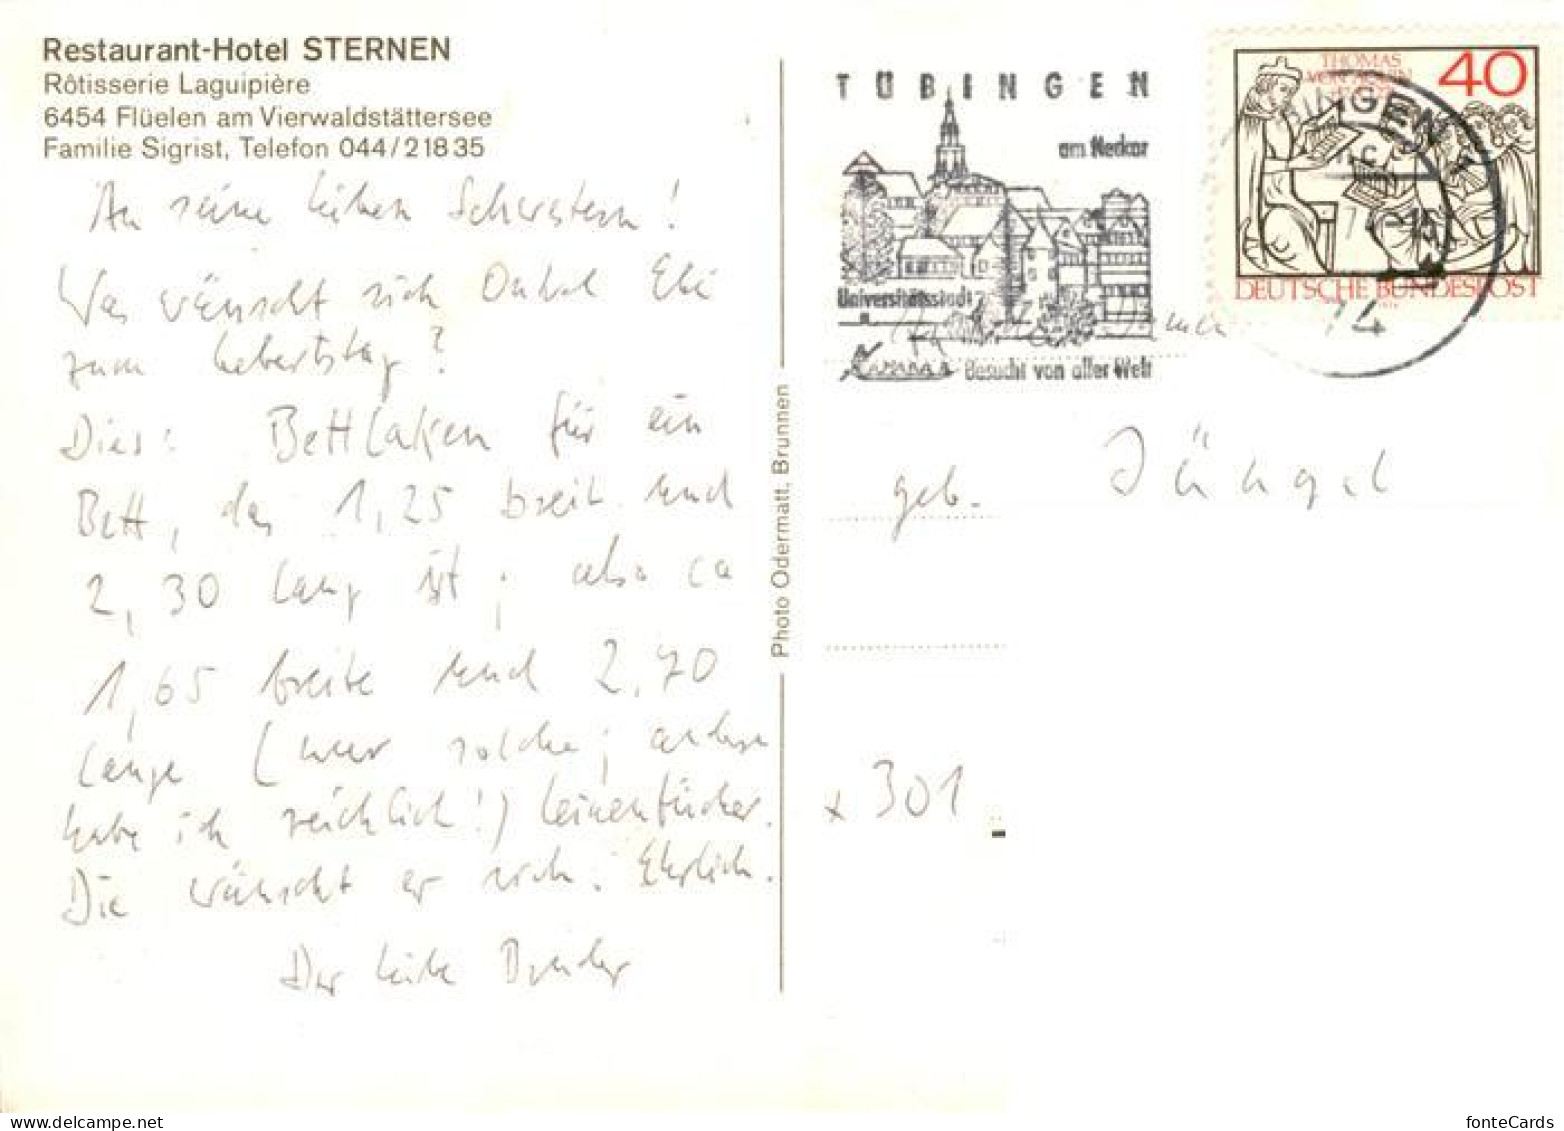 Restaurant-Hotel STERNEN
Rôtisserie Laguipière
6454 Flüelen am Vierwaldstättersee
Familie Sigrist, Telefon 044/2 18 35
An seine lieben Schwestern!
Was wünscht sich Onkel Eki
zum Geburtstag?
Dies: Bettlaken für ein
Bett, das 1,25 breit und
2,30 lang ist; also ca
1,65 breite und 2,70
lange (nur solche; andere
habe ich reichlich!) Leinentücher.
Die wünscht er sich. Ehrlich.
Der liebe Bruder
Photo Odermatt, Brunnen
TÜBINGEN
am Neckar
Universitätsstadt
Besucht von aller Welt
THOMAS
VON AQUIN
40
DEUTSCHE BUNDESPOST
INGEN
74
geb. Jüngel
x 301
fonteCards